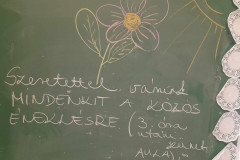 Szeretettel várunk
MINDENKIT A KÖZÖS
ÉNEKLÉSRE. (3. óra
utáni
szünet
AULA)